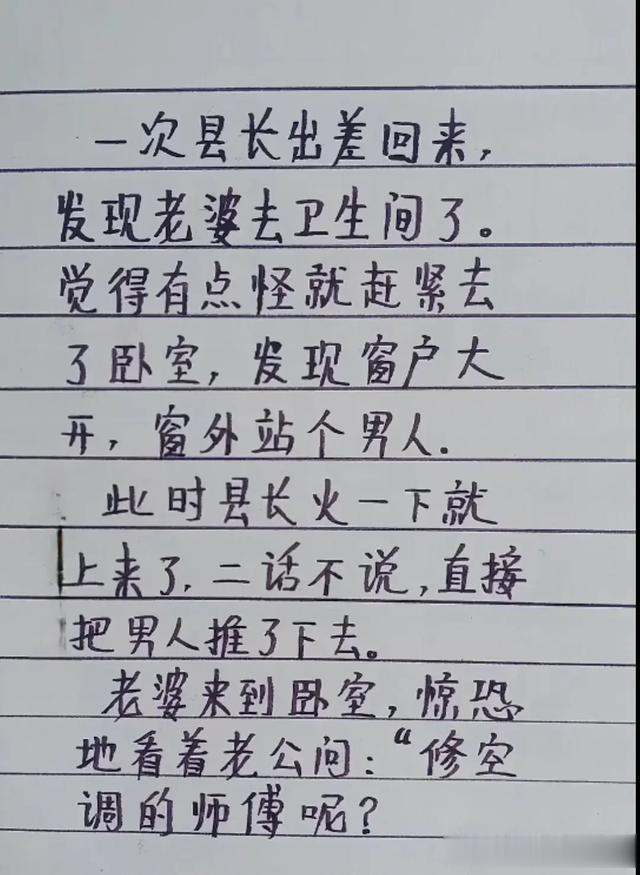 一次县长出差回来,
发现老婆去卫生间了。
觉得有点怪就赶紧去
了卧室,发现窗户大
开,窗外站个男人.
此时县长火一下就
上来了,二话不说,直接
把男人推了下去。
老婆来到卧室,惊恐
地看着老公问:“修空
调的师傅呢?